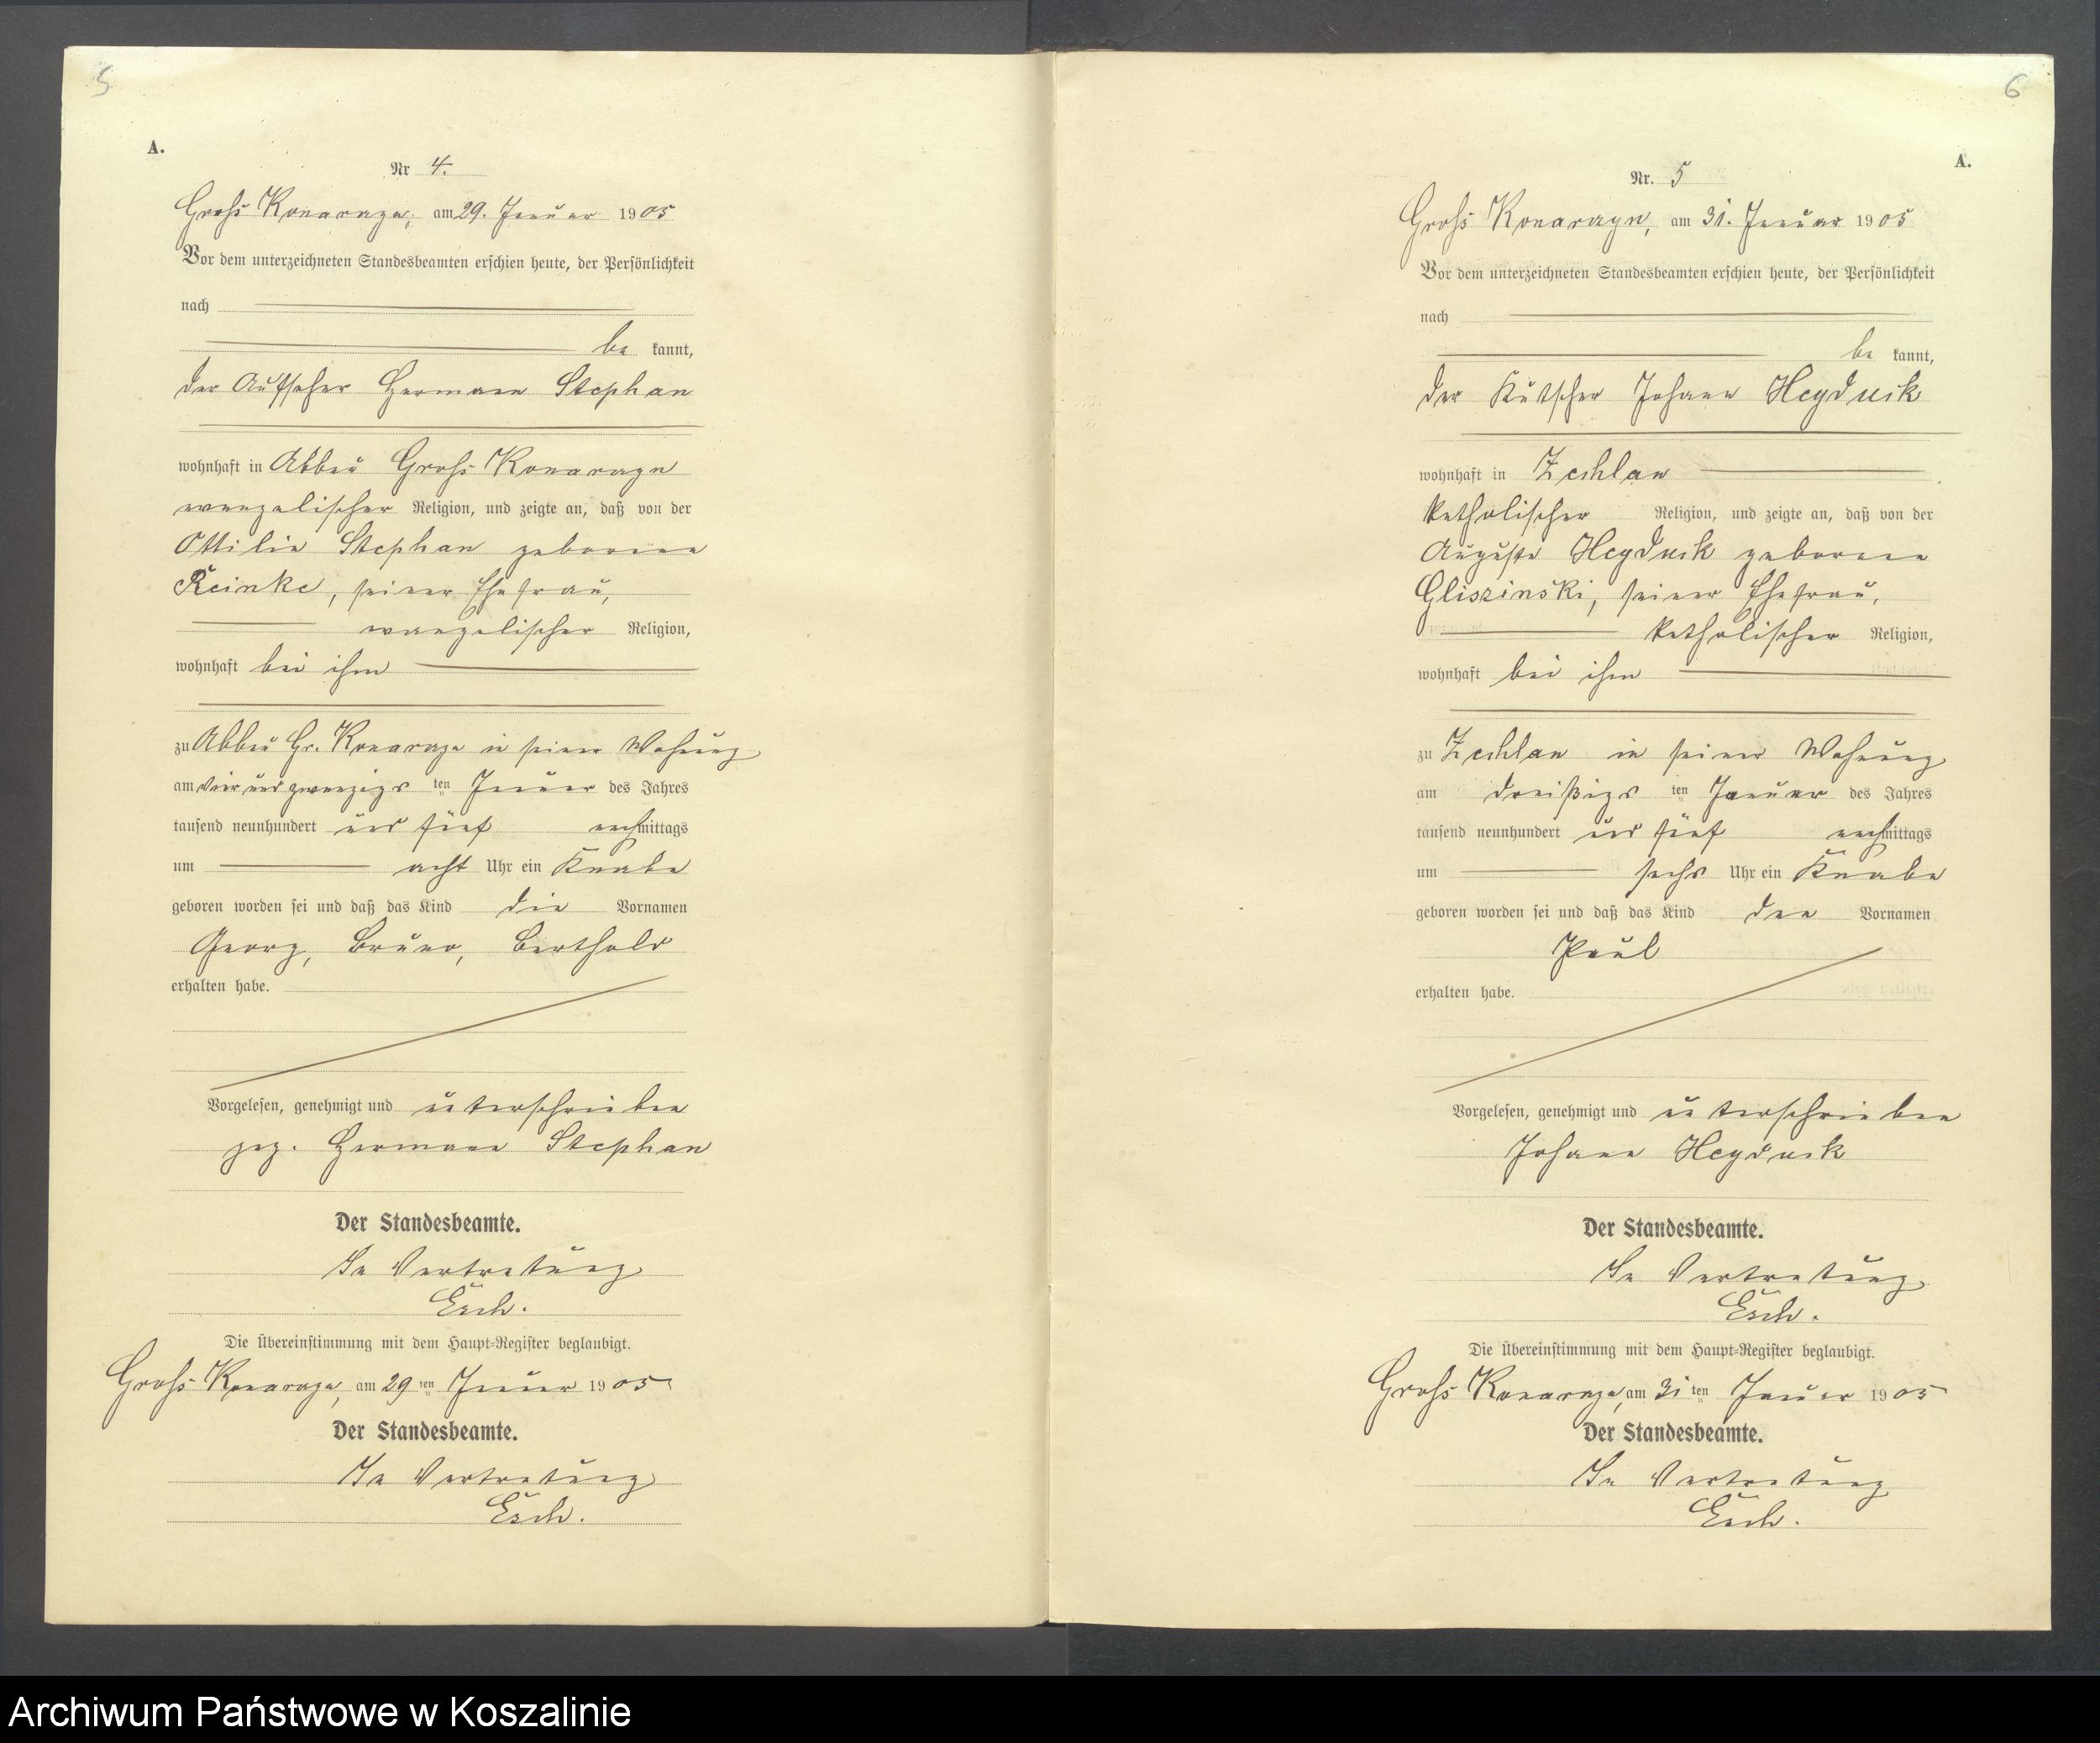 5
A.
Nr 4.
Groß Konarzyn, am 29. Januar 1905
Vor dem unterzeichneten Standesbeamten erschien heute, der Persönlichkeit
nach
be kannt,
der Aufseher Hermann Stephan
wohnhaft in Abbau Groß Konarzyn
evangelischer Religion, und zeigte an, daß von der
Ottilie Stephan geborene
Reinke, seiner Ehefrau,
evangelischer Religion,
wohnhaft bei ihm
zu Abbau Gr. Konarzyn in seiner Wohnung
am vier und zwanzigsten Januar des Jahres
tausend neunhundert und fünf nachmittags
um acht Uhr ein Knabe
geboren worden sei und daß das Kind die Vornamen
Georg, Bruno, Berthold
erhalten habe.
Vorgelesen, genehmigt und unterschrieben
gez. Hermann Stephan
Der Standesbeamte.
In Vertretung
Esch.
Die Übereinstimmung mit dem Haupt-Register beglaubigt.
Groß Konarzyn, am 29ten Januar 1905
Der Standesbeamte.
In Vertretung
Esch.
6
A.
Nr. 5
Groß Konarzyn, am 31. Januar 1905
Vor dem unterzeichneten Standesbeamten erschien heute, der Persönlichkeit
nach
be kannt,
der Kutscher Johann Heyduck
wohnhaft in Zechlau
katholischer Religion, und zeigte an, daß von der
Auguste Heyduck geborene
Gliszinski, seiner Ehefrau,
katholischer Religion,
wohnhaft bei ihm
zu Zechlau in seiner Wohnung
am dreißigsten Januar des Jahres
tausend neunhundert und fünf nachmittags
um sechs Uhr ein Knabe
geboren worden sei und daß das Kind den Vornamen
Paul
erhalten habe.
Vorgelesen, genehmigt und unterschrieben
Johann Heyduck
Der Standesbeamte.
In Vertretung
Esch.
Die Übereinstimmung mit dem Haupt-Register beglaubigt.
Groß Konarzyn, am 31ten Januar 1905
Der Standesbeamte.
In Vertretung
Esch.
Archiwum Państwowe w Koszalinie